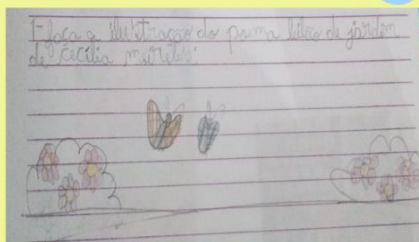 1-faça a ilustração do poema leilão de jardim
de Cecília meireles: